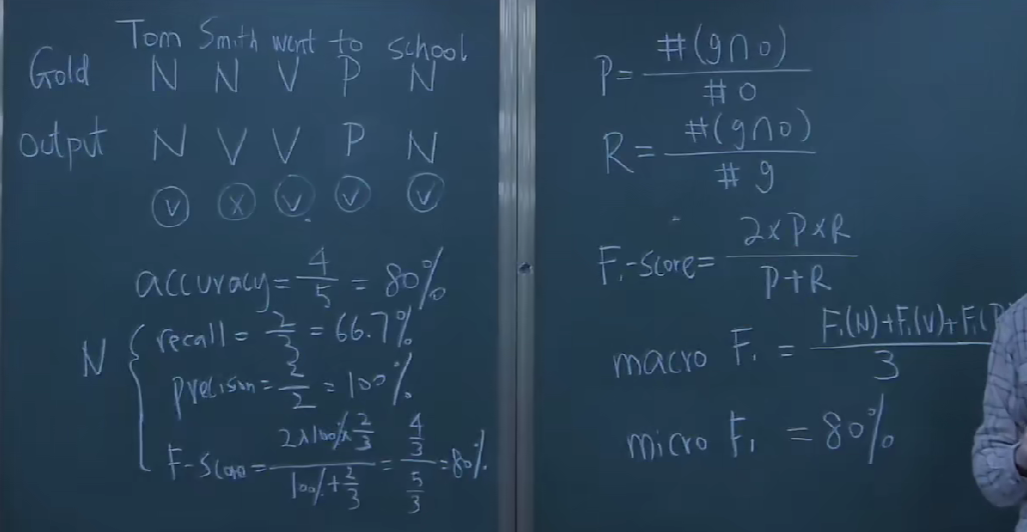 Tom Smith went to school
Gold N N V P N
output N V V P N
V X V V V
accuracy = 4/5 = 80%
N { recall = 2/3 = 66.7%
precision = 2/2 = 100%
F-score = (2x100%x2/3)/(100%+2/3) = (4/3)/(5/3) = 80%
P = #(g∩o)/#o
R = #(g∩o)/#g
F₁-score = (2xPxR)/(P+R)
macro F₁ = (F₁(N)+F₁(V)+F₁(P/3
micro F₁ = 80%